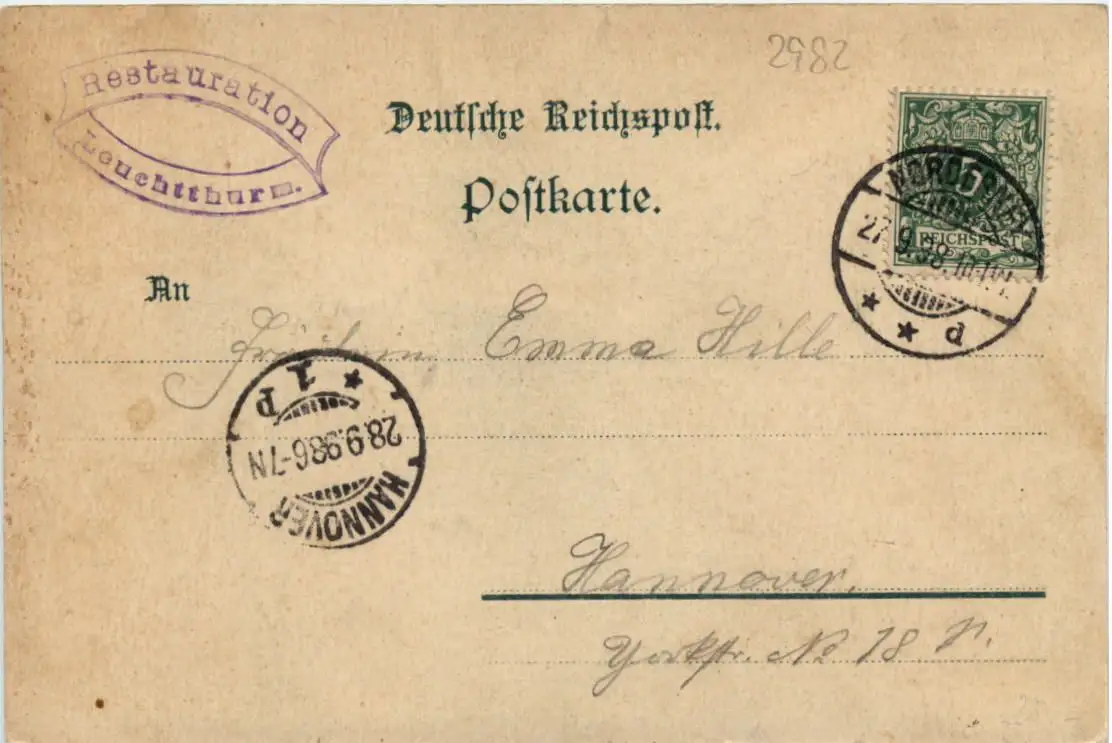 2982
Restauration
Leuchtthurm.
Deutsche Reichspost.
Postkarte.
NORDERNEY
27.9.98.
REICHSPOST
5
p
An
Fräulein Emma Hille
1
p
28.9.98 6-7N
HANNOVER
Hannover.
Yorkstr. No 18 p.